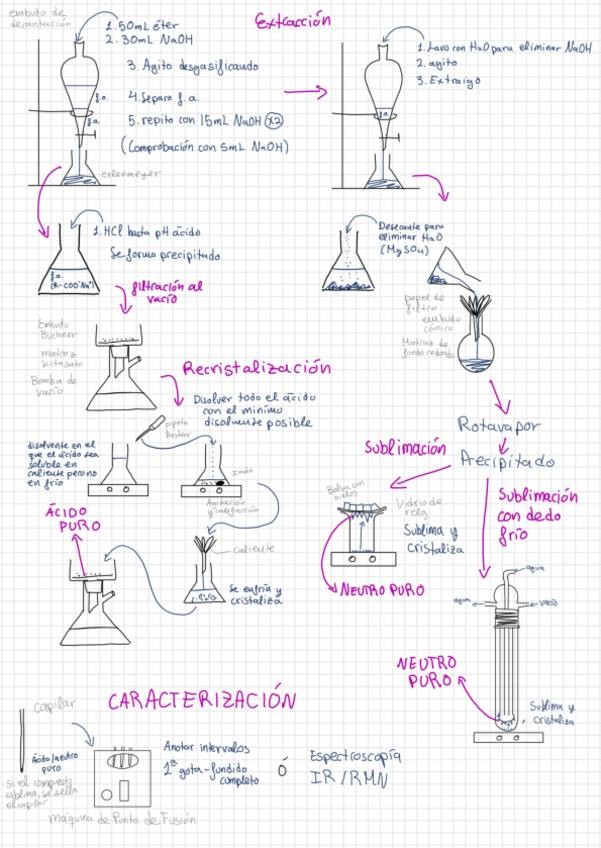 embudo de
decantación
1. 50mL éter
2. 30mL NaOH
3. Agito desgasificando
4. Separo f.a.
5. repito con 15mL NaOH x2
(Comprobación con 5mL NaOH)
f.o.
f.a.
erlenmeyer
Extracción
1. Lavo con H2O para eliminar NaOH
2. agito
3. Extraigo
f.o.
1. HCl hasta pH ácido
Se forma precipitado
f.a.
(R-COO⁻Na⁺)
filtración al
vacío
Desecante para
eliminar H2O
(MgSO4)
papel de
filtro
embudo
cónico
Matraz de
fondo redondo
Embudo
Büchner
matraz
kitasato
Bomba de
vacío
Recristalización
Disolver todo el ácido
con el mínimo
disolvente posible
pipeta
Pasteur
disolvente en el
que el ácido sea
soluble en
caliente pero no
en frío
Imán
Agitación
y calefacción
ÁCIDO
PURO
caliente
Se enfría y
cristaliza
Rotavapor
Precipitado
Sublimación
Bolsa con
hielos
Vidrio de
reloj
Sublima y
cristaliza
NEUTRO PURO
Sublimación
con dedo
frío
agua
agua
vacío
NEUTRO
PURO
Sublima y
cristaliza
CARACTERIZACIÓN
capilar
Ácido/neutro
puro
si el compuesto
sublima, se sella
el capilar
Máquina de Punto de Fusión
Anotar intervalos
1ª gota-fundido
completo
ó
Espectroscopía
IR/RMN